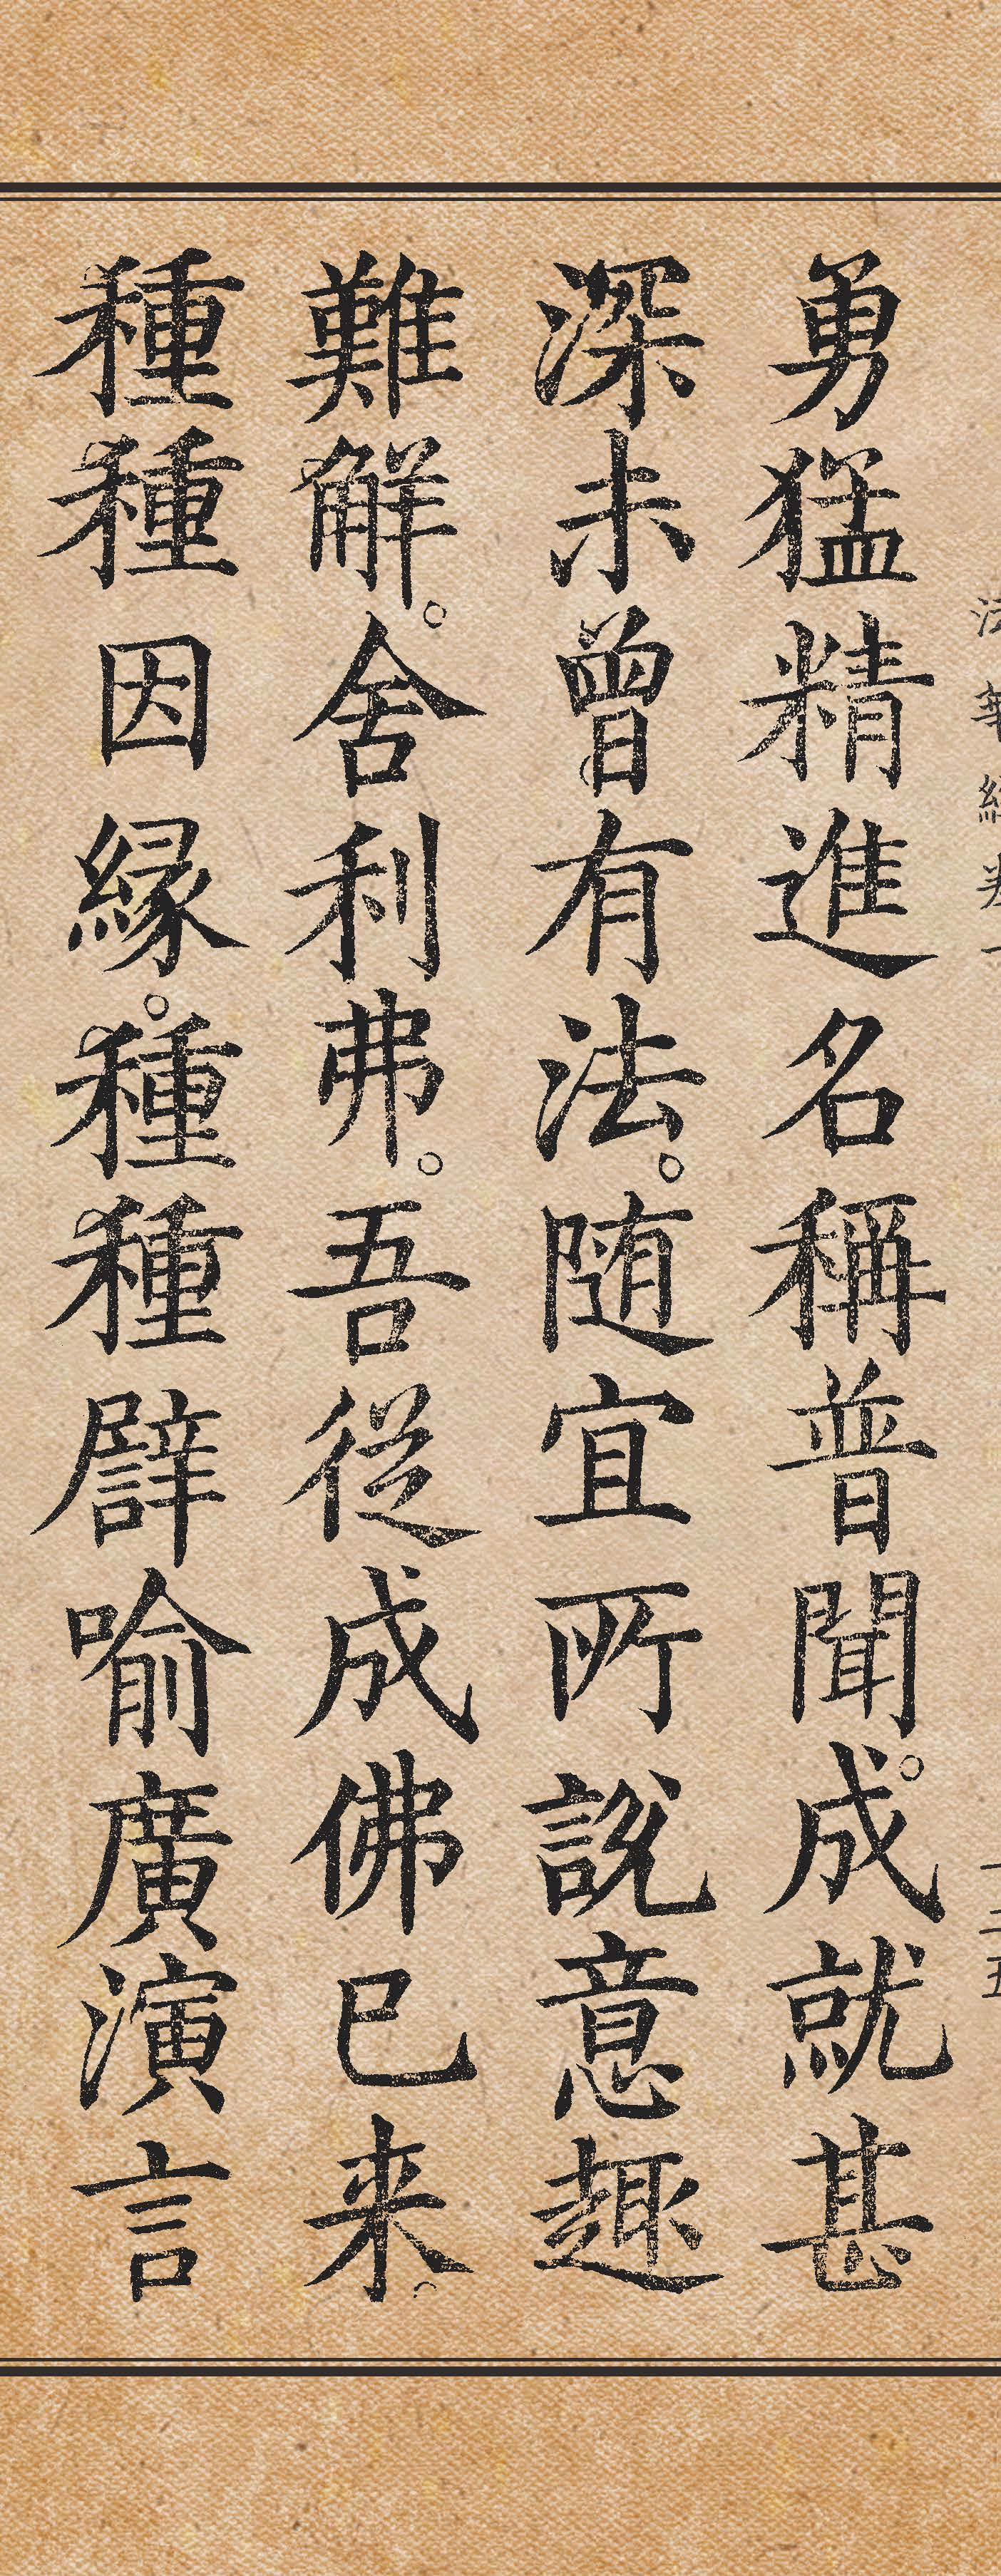 法華經卷一
二五
勇猛精進名稱普聞。成就甚
深未曾有法。随宜所說意趣
難解。舍利弗。吾從成佛已来。
種種因縁。種種譬喻廣演言